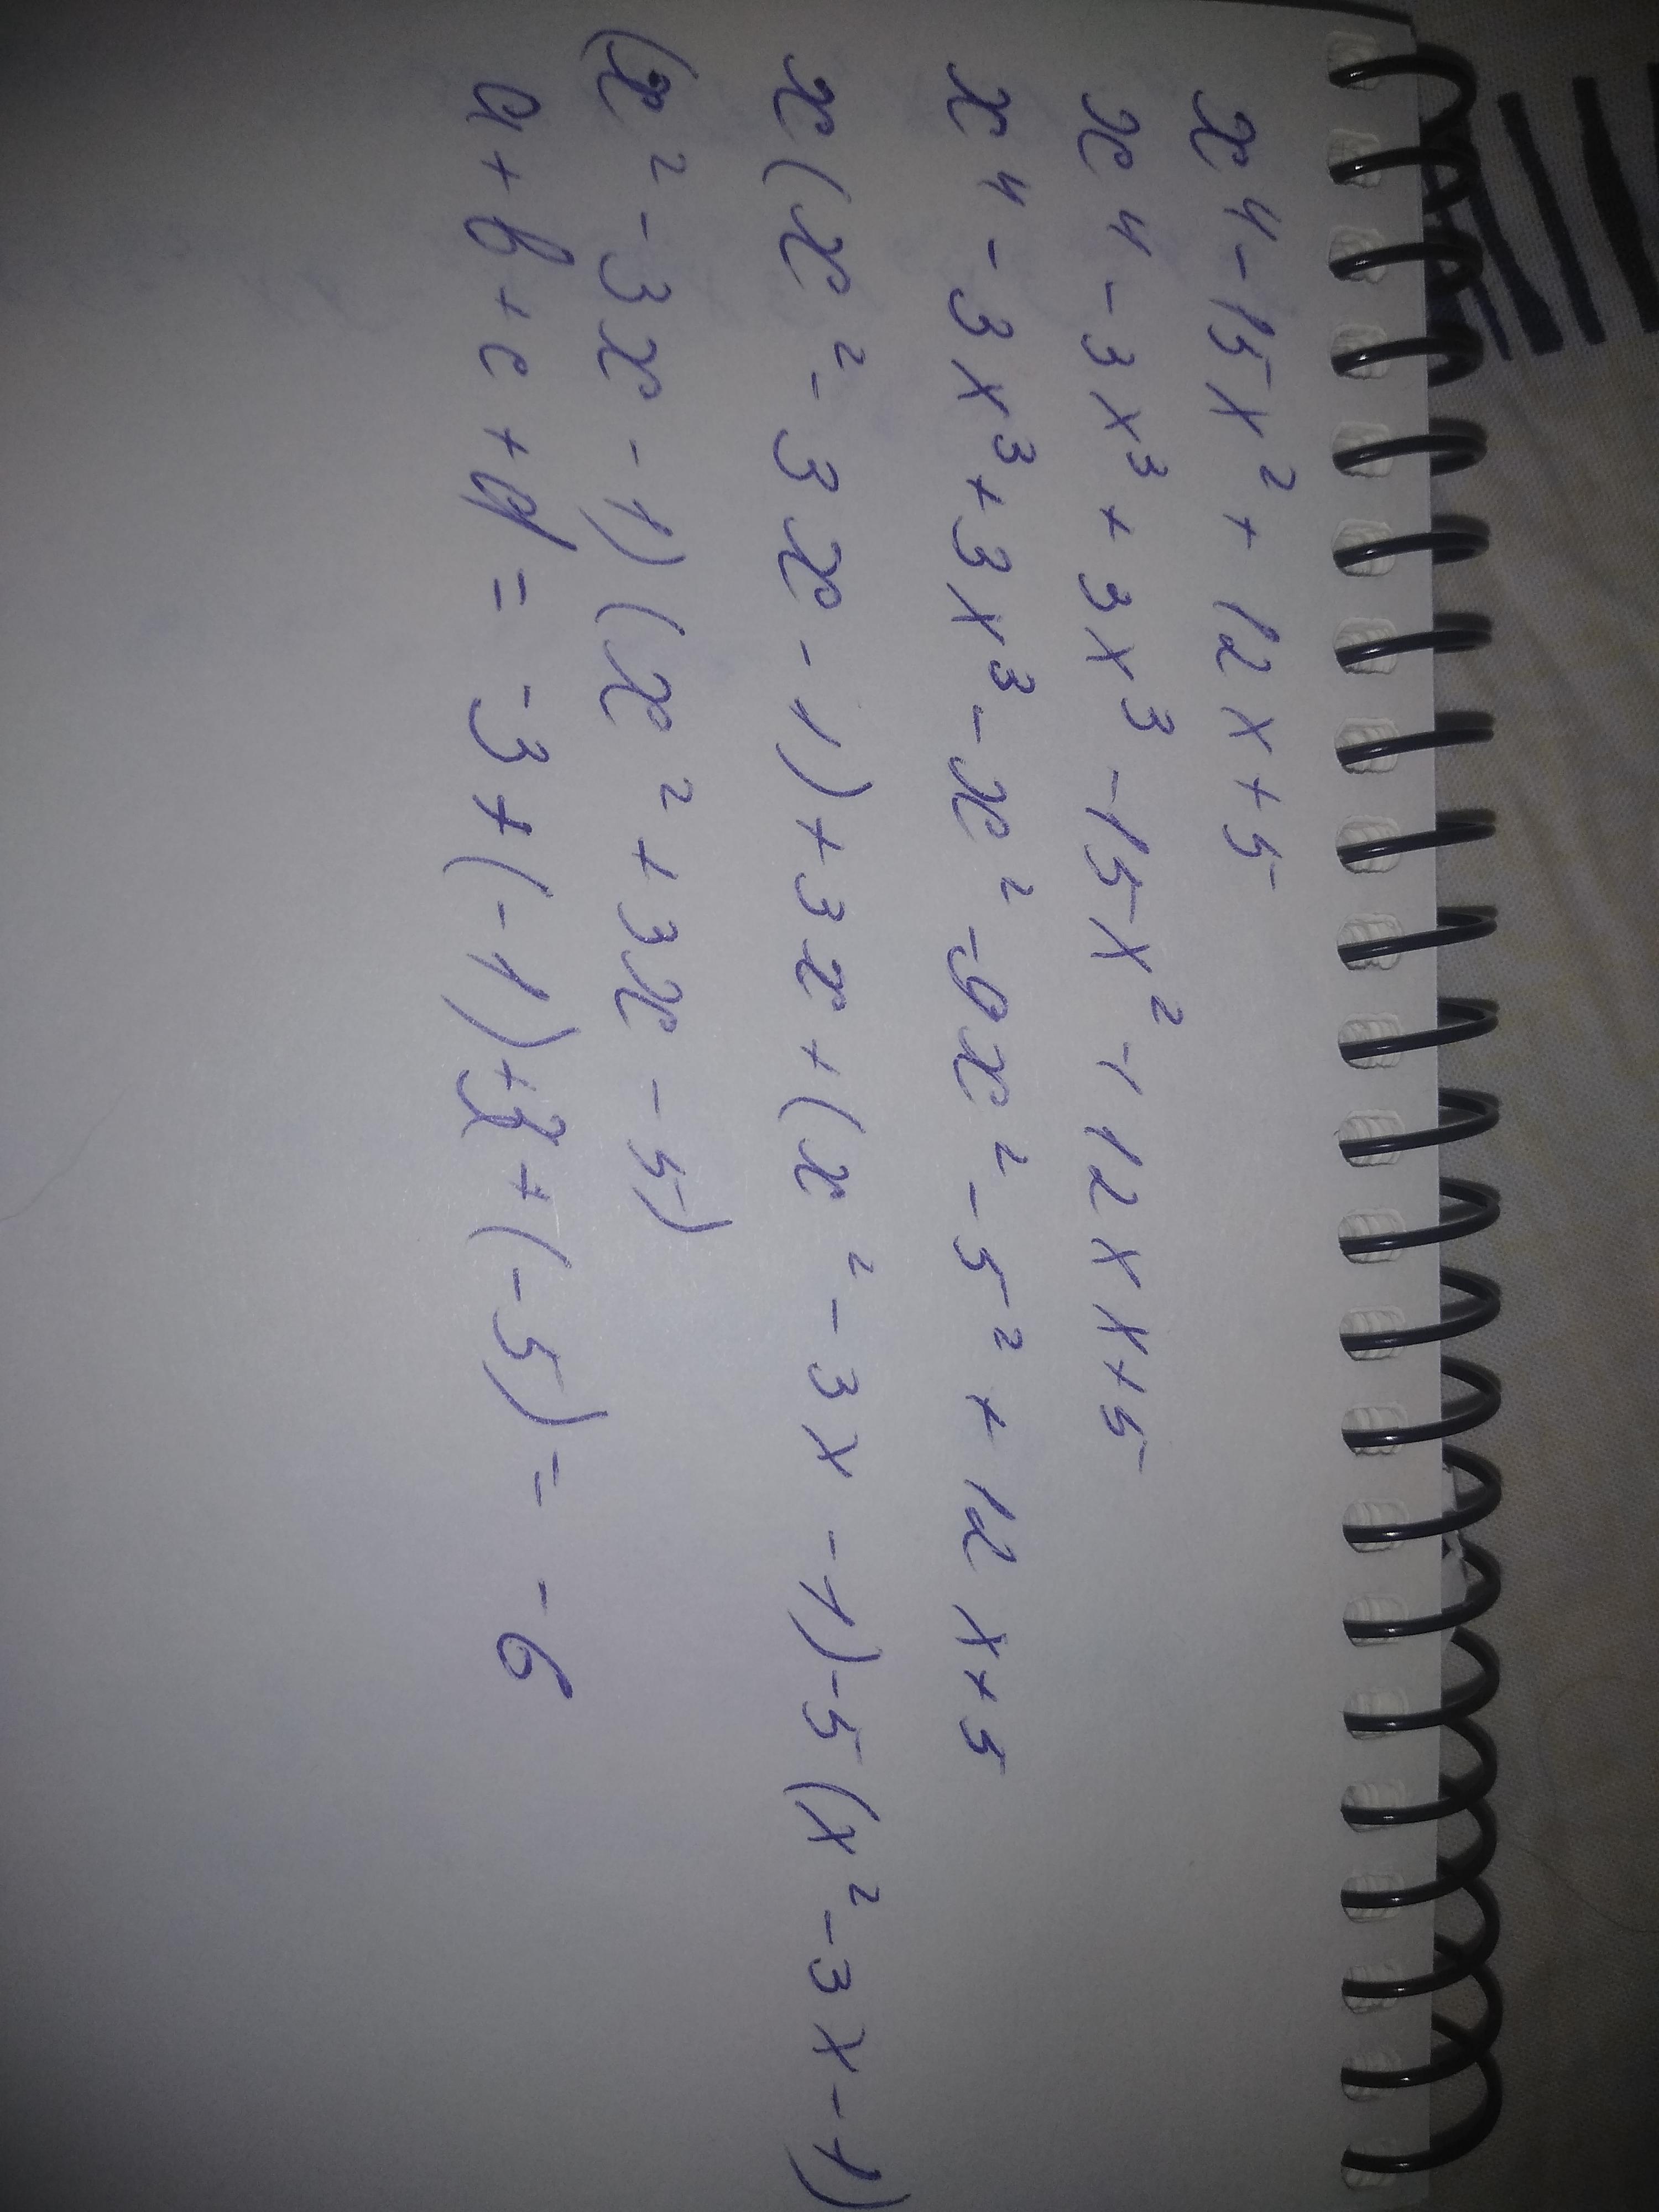 x⁴-15x²+12x+5
x⁴-3x³+3x³-15x²+12xx+5
x⁴-3x³+3x³-x²-9x²-5²+12x+5
x(x²-3x-1)+3x+(x²-3x-1)-5(x²-3x-1)
(x²-3x-1)(x²+3x-5)
a+b+c+d=-3+(-1)+3+(-5)=-6